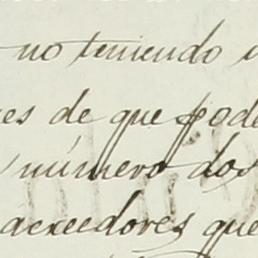 no teniendo
es de que pode
número dos
acreedores que